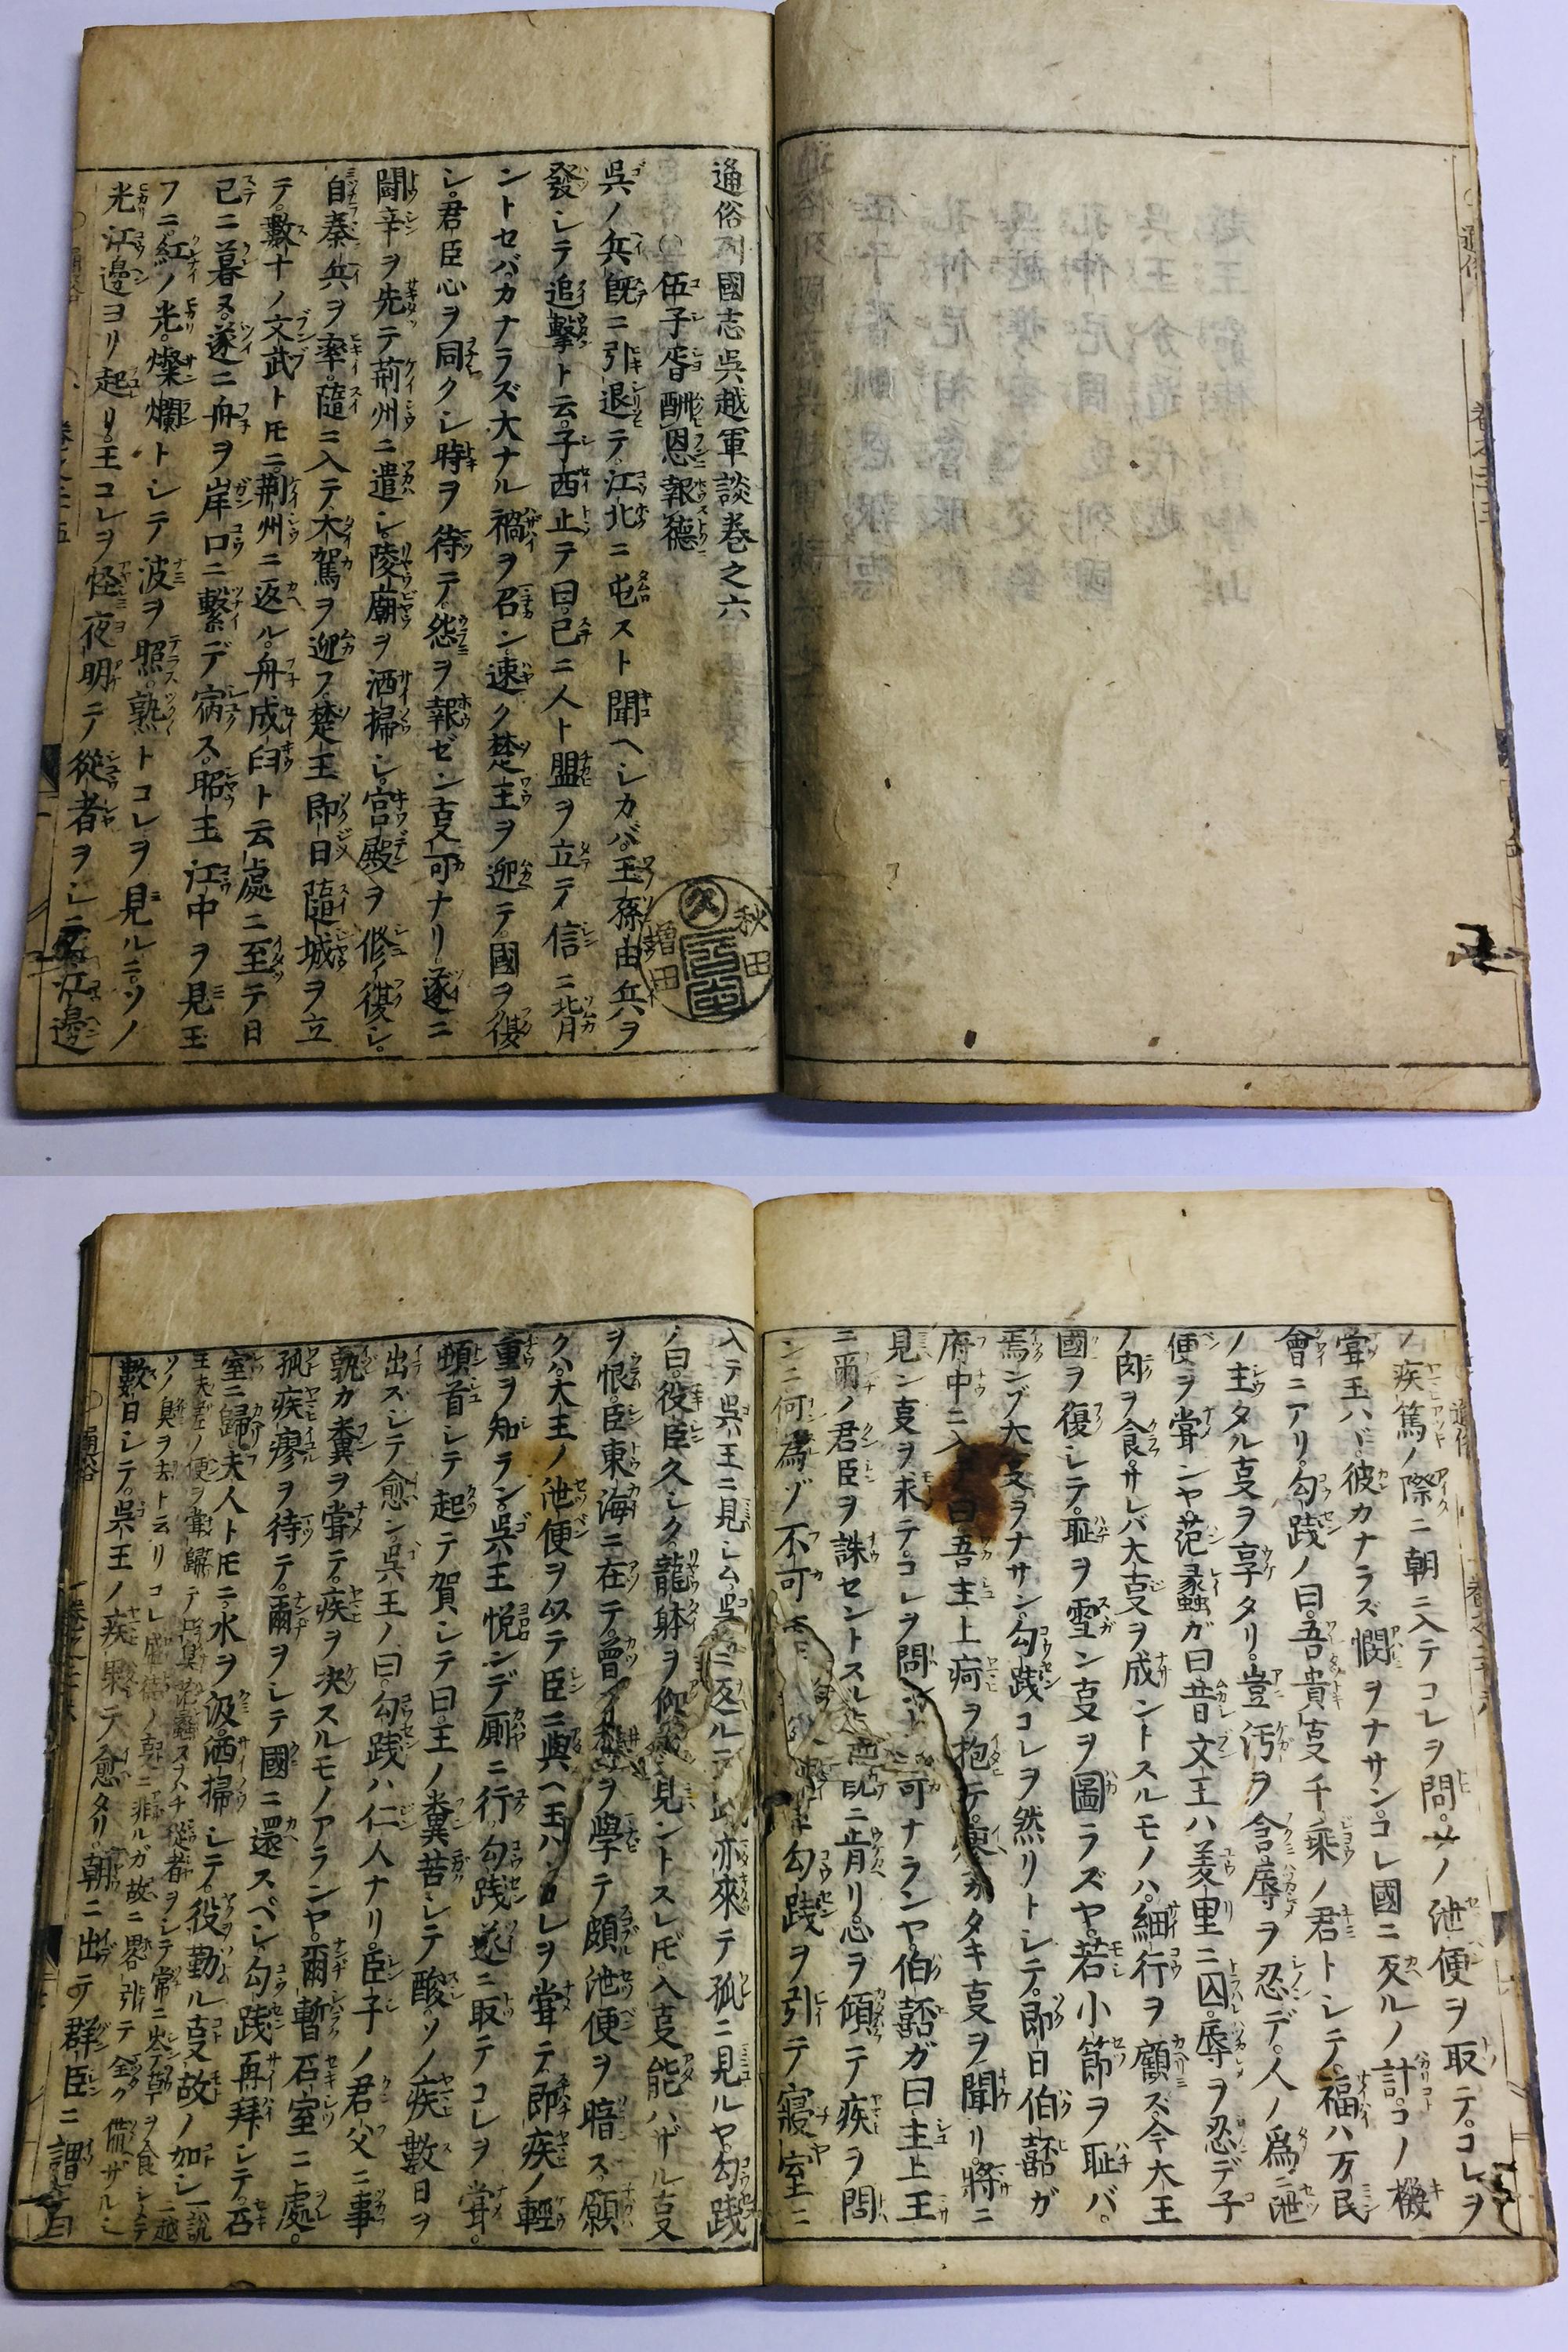 通俗列國志吳越軍談巻之六
伍子胥酬恩報德
吳ノ兵既ニ引退テ江北ニ屯スト聞ヘシカバ王孫由兵ヲ
發シテ追擊ト云子西止テ曰已ニ人ト盟ヲ立テ信ニ背
ントセバカナラズ大ナル禍ヲ召ン速ク楚王ヲ迎テ國ヲ復
シ君臣心ヲ同クシ時ヲ待テ怨ヲ報ゼン叓可ナリ遂ニ
鬪辛ヲ先テ荊州ニ遣シ陵廟ヲ洒掃シ宮殿ヲ修復シ
自秦兵ヲ率隨ニ入テ大駕ヲ迎フ楚王即日隨城ヲ立
テ數十ノ文武トモニ荊州ニ返ル舟成臼ト云處ニ至テ日
已ニ暮ヌ遂ニ舟ヲ岸口ニ繫デ宿ス昭王江中ヲ見玉
フニ紅ノ光燦爛トシテ波ヲ照熟トコレヲ見ルニソノ
光江邊ヨリ起リ王コレヲ怪夜明テ從者ヲシテ江邊
秋田
增田
久
ノ疾篤ノ際ニ朝ニ入テコレヲ問ソノ泄便ヲ取テコレヲ
甞玉ハバ彼カナラズ憫ヲナサンコレ國ニ反ルノ計コノ機
會ニアリ勾踐ノ曰吾貴叓千乘ノ君トシテ福ハ万民
ノ主タル叓ヲ享タリ豈汚ヲ含辱ヲ忍デ人ノ爲ニ泄
便ヲ甞ンヤ范蠡ガ曰昔文王ハ羑里ニ囚辱ヲ忍デ子
ノ肉ヲ食サレバ大叓ヲ成ントスルモノハ細行ヲ顧ズ今大王
國ヲ復シテ恥ヲ雪ン叓ヲ圖ラズヤ若小節ヲ恥バ
焉ンゾ大叓ヲナサン勾踐コレヲ然リトシテ即日伯嚭ガ
府中ニ入 曰吾主上疴ヲ抱テ カタキ叓ヲ聞リ將ニ
見ン叓ヲ求テコレヲ問 可ナランヤ伯嚭ガ曰主上王
ニ爾ノ君臣ヲ誅セントス 肯リ心ヲ傾テ疾ヲ問
ンニ何爲ゾ不可 勾踐ヲ引テ寢室ニ
入テ吳王ニ見シム吳 ニ返ル 亦來テ孤ニ見ルヤ勾踐
ノ曰役臣久シク龍躰ヲ 見ントスレドモ入叓能ハザル叓
ヲ恨臣東海ニ在テ曾 ヲ學テ頗泄便ヲ暗ス願
クハ大主ノ泄便ヲ以テ臣ニ與ヘ玉ハンコレヲ甞テ即疾ノ輕
重ヲ知ラン吳王悅ンデ厠ニ行勾踐遂ニ取テコレヲ甞
頓首シテ起テ賀シテ曰王ノ糞苦シテ酸ソノ疾數日ヲ
出ズシテ愈ン吳王ノ曰勾踐ハ仁人ナリ臣子ノ君父ニ事
孰カ糞ヲ甞テ疾ヲ决スルモノアランヤ爾暫石室ニ處
孤疾瘳ヲ待テ爾ヲシテ國ニ還スベシ勾踐再拜シテ石
室ニ歸夫人トモニ水ヲ汲洒掃シテ役勤ル叓故ノ如シ 一說ニ越
王夫差ノ便ヲ甞歸テ口臭范蠡スナハチ從者ヲシテ常ニ岑草ヲ食シメテ
ソノ臭ヲ去ト云リコレ盛德ノ叓ニ非ルガ故ニ畧引テ全ク 備ザルノミ
數日シテ吳王ノ疾果テ愈タリ朝ニ出テ群臣ニ謂テ曰